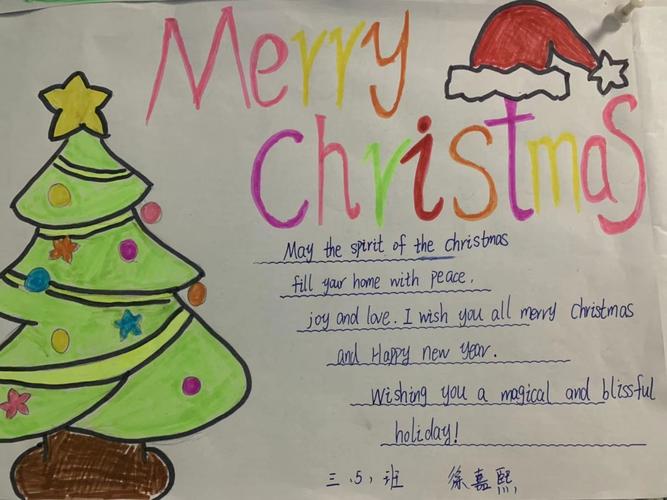 Merry
Christmas
May the spirit of the christmas
fill your home with peace,
joy and love. I wish you all merry Christmas
and Happy new year.
Wishing you a magical and blissful
holiday!
三.5,班 徐嘉熙